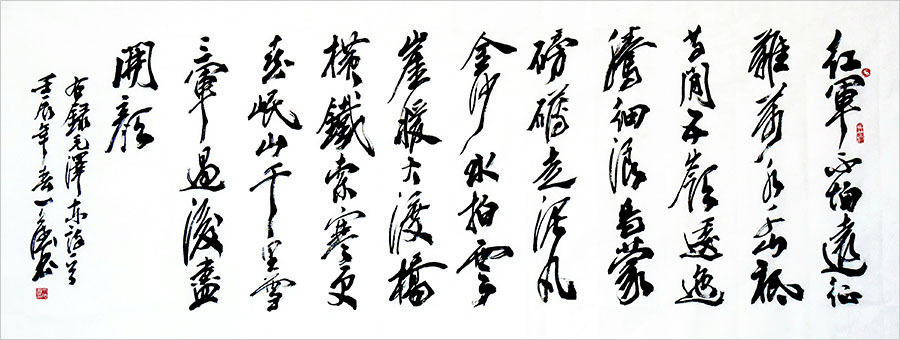 紅軍不怕遠征
難萬水千山祇
等閒五嶺逶迤
騰細浪烏蒙
磅礴走泥丸
金沙水拍雲
崖暖大渡橋
橫鐵索寒更
喜岷山千里雪
三軍過後盡
開顏
右録毛澤東詩一首
壬辰年春一